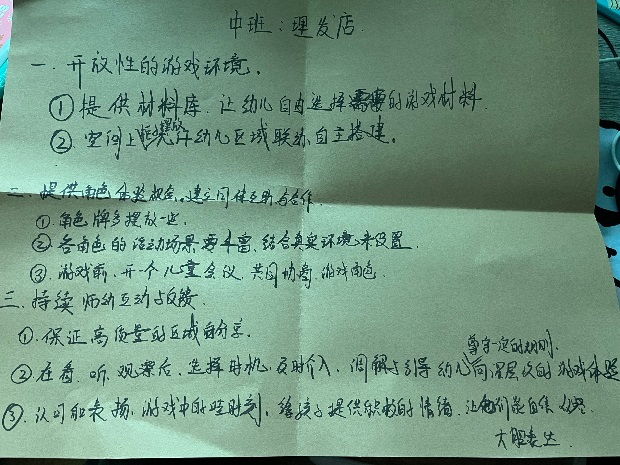 中班：理发店
一、开放性的游戏环境。
①提供材料库，让幼儿自由选择需要的游戏材料.
②空间上摆放幼儿区域联动,自主搭建。
二、提供角色体验机会。建立同伴互助与合作
①.角色牌多摆放一些.
②各角色的活动场景要丰富,结合真实环境来设置.
③.游戏前,开一个儿童会议,共同协商,游戏角色.
三、持续师幼互动与反馈.
①.保证高质量的区域分享.
遵守一定的规则、
②在看、听、观察后、选择时机,及时介入、调解与引导幼儿向深层次的游戏体验
③.认可和表扬,游戏中的哇时刻,给孩子提供积极的情绪,让他们能自信
大胆表达.